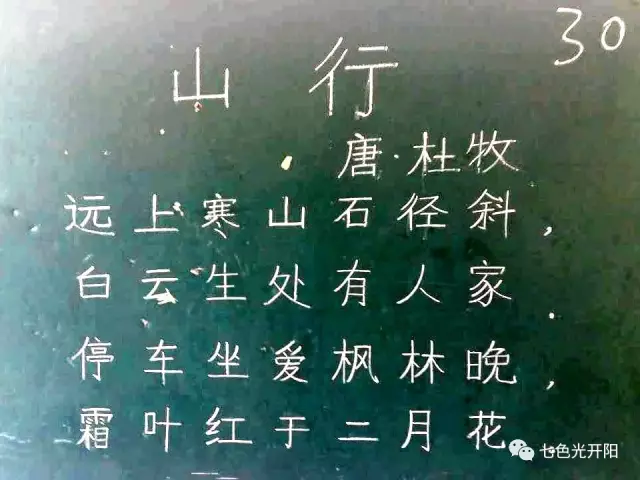 30
山行
唐·杜牧
远上寒山石径斜，
白云生处有人家.
停车坐爱枫林晚，
霜叶红于二月花
七色光开阳